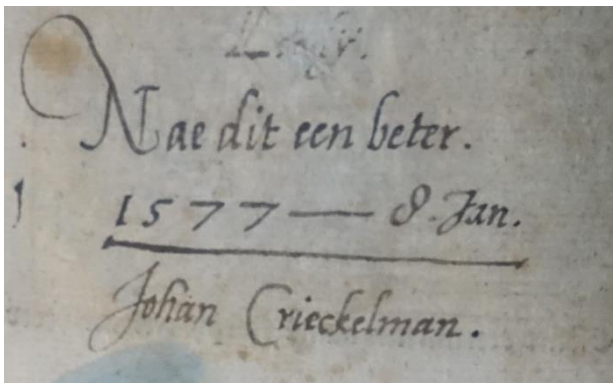 Nae dit een beter.
1577 — 8. Jan.
Johan Crieckelman.